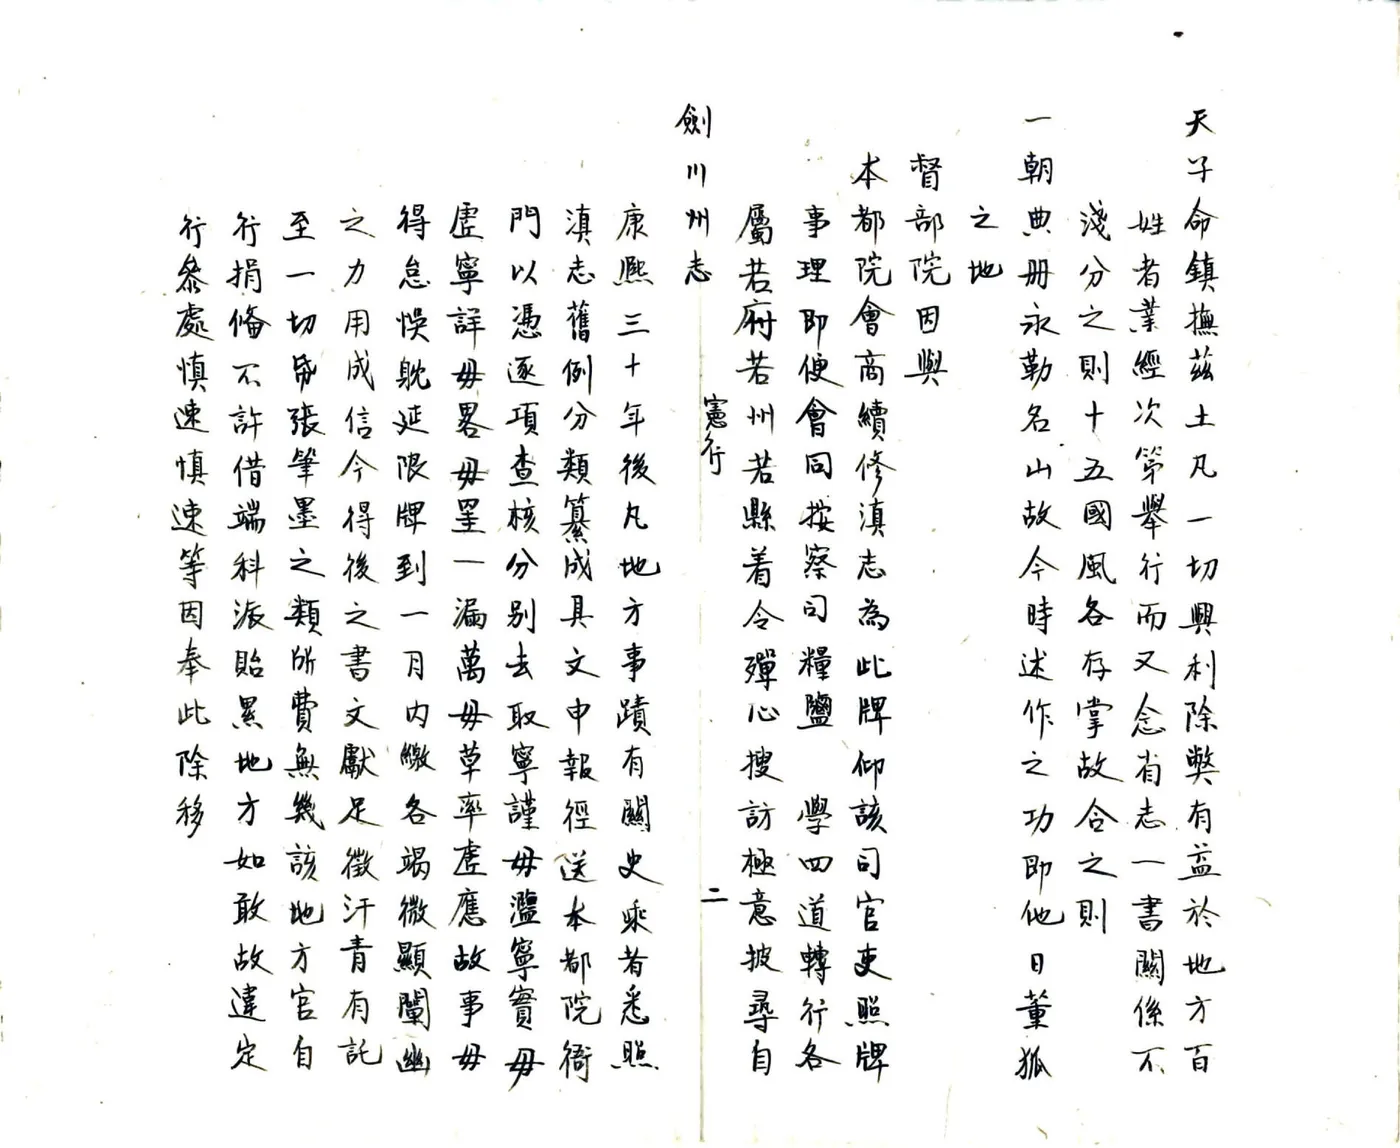 天子命鎮撫茲土凡一切興利除獘有益於地方百
姓者業經次第舉行而又念省志一書關係不
淺分之則十五國風各存掌故合之則
一朝典册永勒名山故今時述作之功即他日董狐
之地
督部院因與
本都院會商續修滇志為此牌仰該司官吏照牌
事理即便會同按察司糧鹽 學四道轉行各
屬若府若州若縣着令殫心搜訪極意披尋自
劍川州志 憲行 二
康熙三十年後凡地方事蹟有關史乘者悉照
滇志舊例分類纂成具文申報徑送本都院衙
門以憑逐項查核分别去取寧謹毋濫寧實毋
虛寧詳毋畧毋罣一漏萬毋草率虛應故事毋
得怠悞躭延限牌到一月內繳各竭微顯闡幽
之力用成信今得後之書文獻足徵汗青有託
至一切昏張筆墨之類所費無幾該地方官自
行捐俻不許借端科派貽累地方如敢故違定
行叅處慎速慎速等因奉此除移